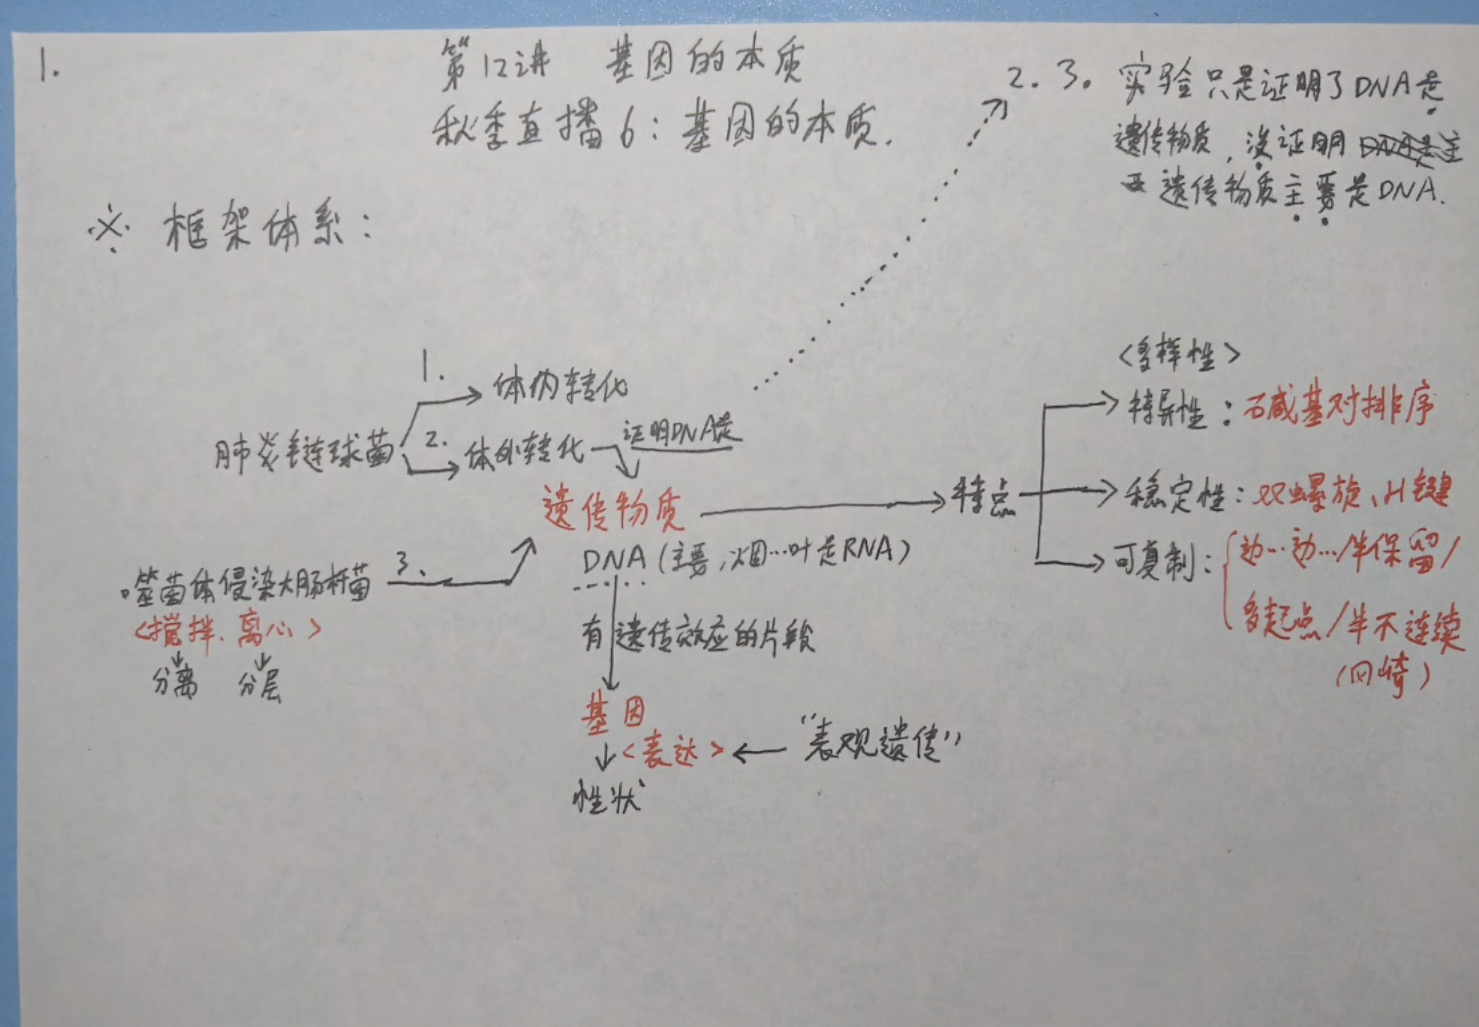 1.
第12讲 基因的本质
秋季直播6：基因的本质.
2. 3. 实验只是证明了DNA是
遗传物质，没证明
遗传物质主要是DNA.
※ 框架体系：
1.
体内转化
肺炎链球菌
2.
体外转化
证明DNA是
遗传物质
DNA（主要，烟…叶是RNA）
噬菌体侵染大肠杆菌
3.
<搅拌、离心>
分离 分层
有遗传效应的片段
基因
<表达>
“表观遗传”
性状
特点
<多样性>
特异性：碱基对排序
稳定性：双螺旋、H键
可复制：
边…边…/半保留/
多起点/半不连续
（冈崎）